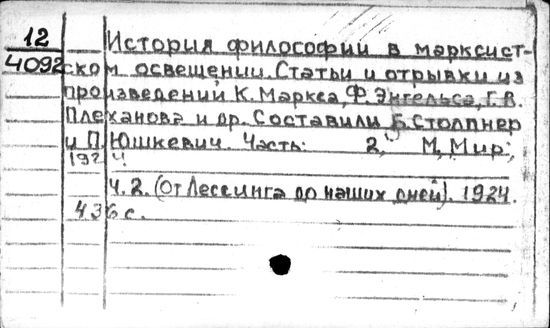 12
4092
История философии в марксист-
ском освещении. Статьи и отрывки из
произведений К. Маркса, Ф. Энгельса, Г. В.
Плеханова и др. Составили Б. Столпнер
и П. Юшкевич. Часть: 2, М, Мир;
192 Ч.
Ч. 2. (От Лессинга до наших дней). 1924.
436 с.